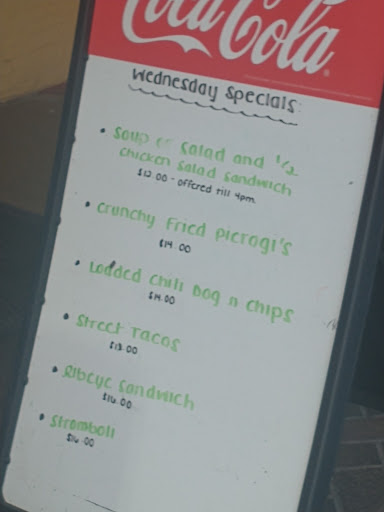 Coca-Cola
Wednesday Specials:
• Soup or Salad and 1/2
Chicken Salad Sandwich
$12.00 - offered till 4pm.
• Crunchy Fried Pierogi's
$14.00
• Loaded Chili Dog n Chips
$14.00
• Street Tacos
$13.00
• Ribeye Sandwich
$16.00
• Stromboli
$16.00